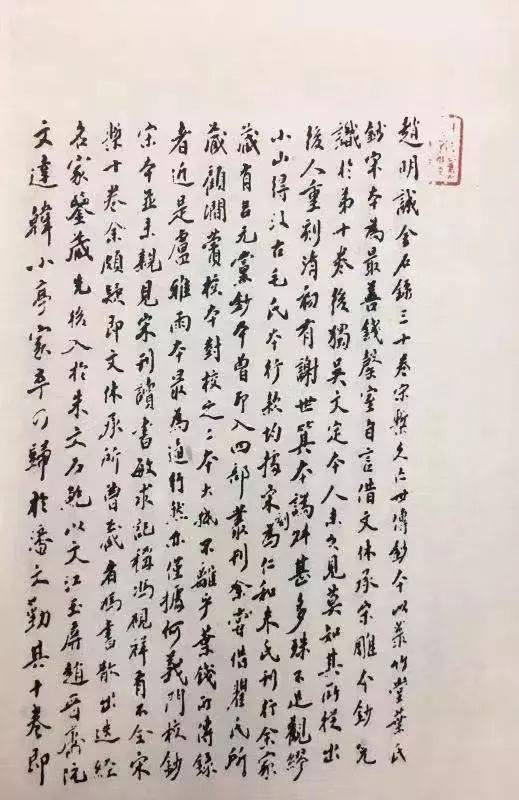 趙明誠金石錄三十卷宋槧久亡世傳鈔本以菉竹堂葉氏
鈔宋本為最善錢罄室自言借文休承宋雕本鈔完
識於第十卷後獨吳文定本人未之見莫知其所從出
後人重刻濟南有謝世箕本譌舛甚多殊不足觀繆
小山得汲古毛氏本行款均據宋刻為仁和朱氏刊行余家
藏有呂无黨鈔本曾印入四部叢刊余嘗借瞿氏所
藏顧澗薲校本對校之二本大抵不離乎葉錢所傳錄
者近是盧雅雨本最為通行然亦僅據何義門校鈔
宋本並未親見宋刊讀書敏求記稱馮硯祥有不全宋
槧十卷余頗疑即文休承所曾藏者馮書散出迭經
名家鑒藏先後入於朱文石鮑以文江玉屏趙晉齋阮
文達韓小亭家卒乃歸於潘文勤其十卷即